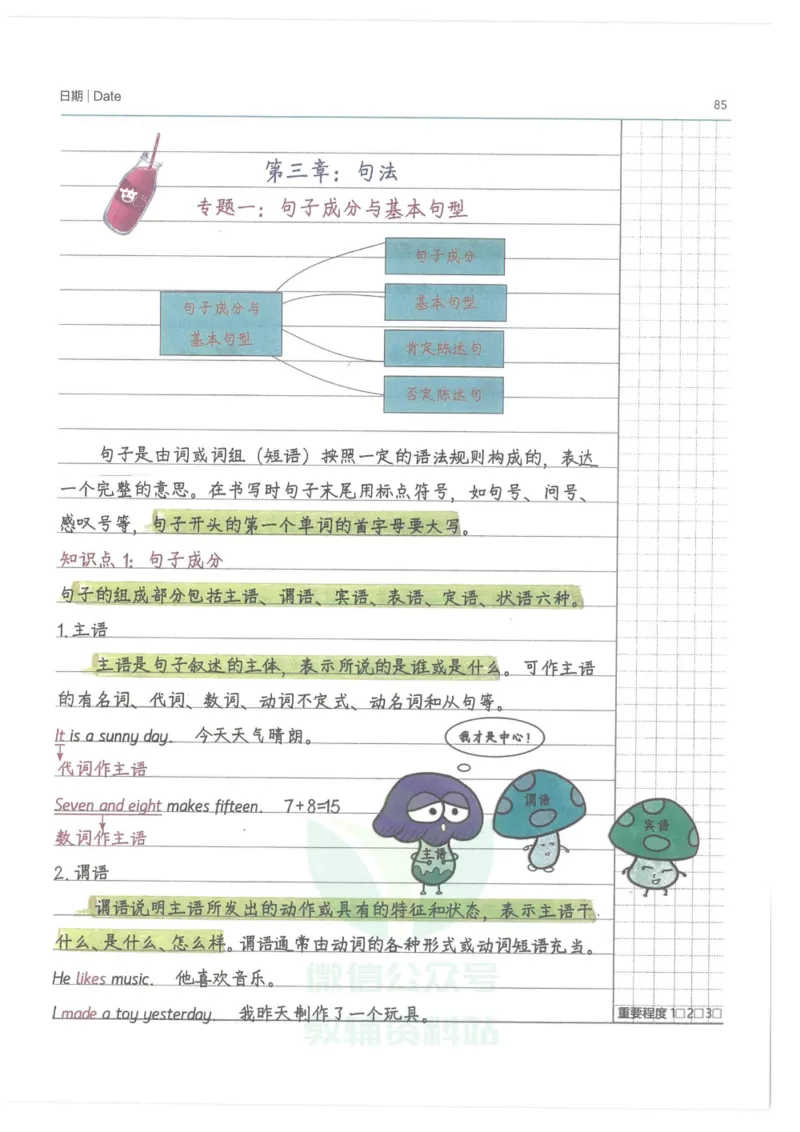 日期 | Date
85
第三章：句法
专题一：句子成分与基本句型
句子成分与
基本句型
句子成分
基本句型
肯定陈述句
否定陈述句
句子是由词或词组（短语）按照一定的语法规则构成的，表达
一个完整的意思。在书写时句子末尾用标点符号，如句号、问号、
感叹号等，句子开头的第一个单词的首字母要大写。
知识点1：句子成分
句子的组成部分包括主语、谓语、宾语、表语、定语、状语六种。
1.主语
主语是句子叙述的主体，表示所说的是谁或是什么。可作主语
的有名词、代词、数词、动词不定式、动名词和从句等。
It is a sunny day. 今天天气晴朗。
代词作主语
Seven and eight makes fifteen. 7+8=15
数词作主语
我才是中心！
主语
谓语
宾语
2.谓语
谓语说明主语所发出的动作或具有的特征和状态，表示主语干
什么、是什么、怎么样。谓语通常由动词的各种形式或动词短语充当。
He likes music. 他喜欢音乐。
I made a toy yesterday. 我昨天制作了一个玩具。
微信公众号
教辅资料站
重要程度 1□ 2□ 3□